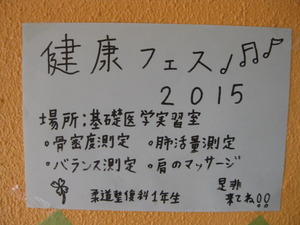 健康フェス♩♫♪
2015
場所:基礎医学実習室
○骨密度測定 ○肺活量測定
○バランス測定 ○肩のマッサージ
柔道整復科1年生
是非
来てね!!